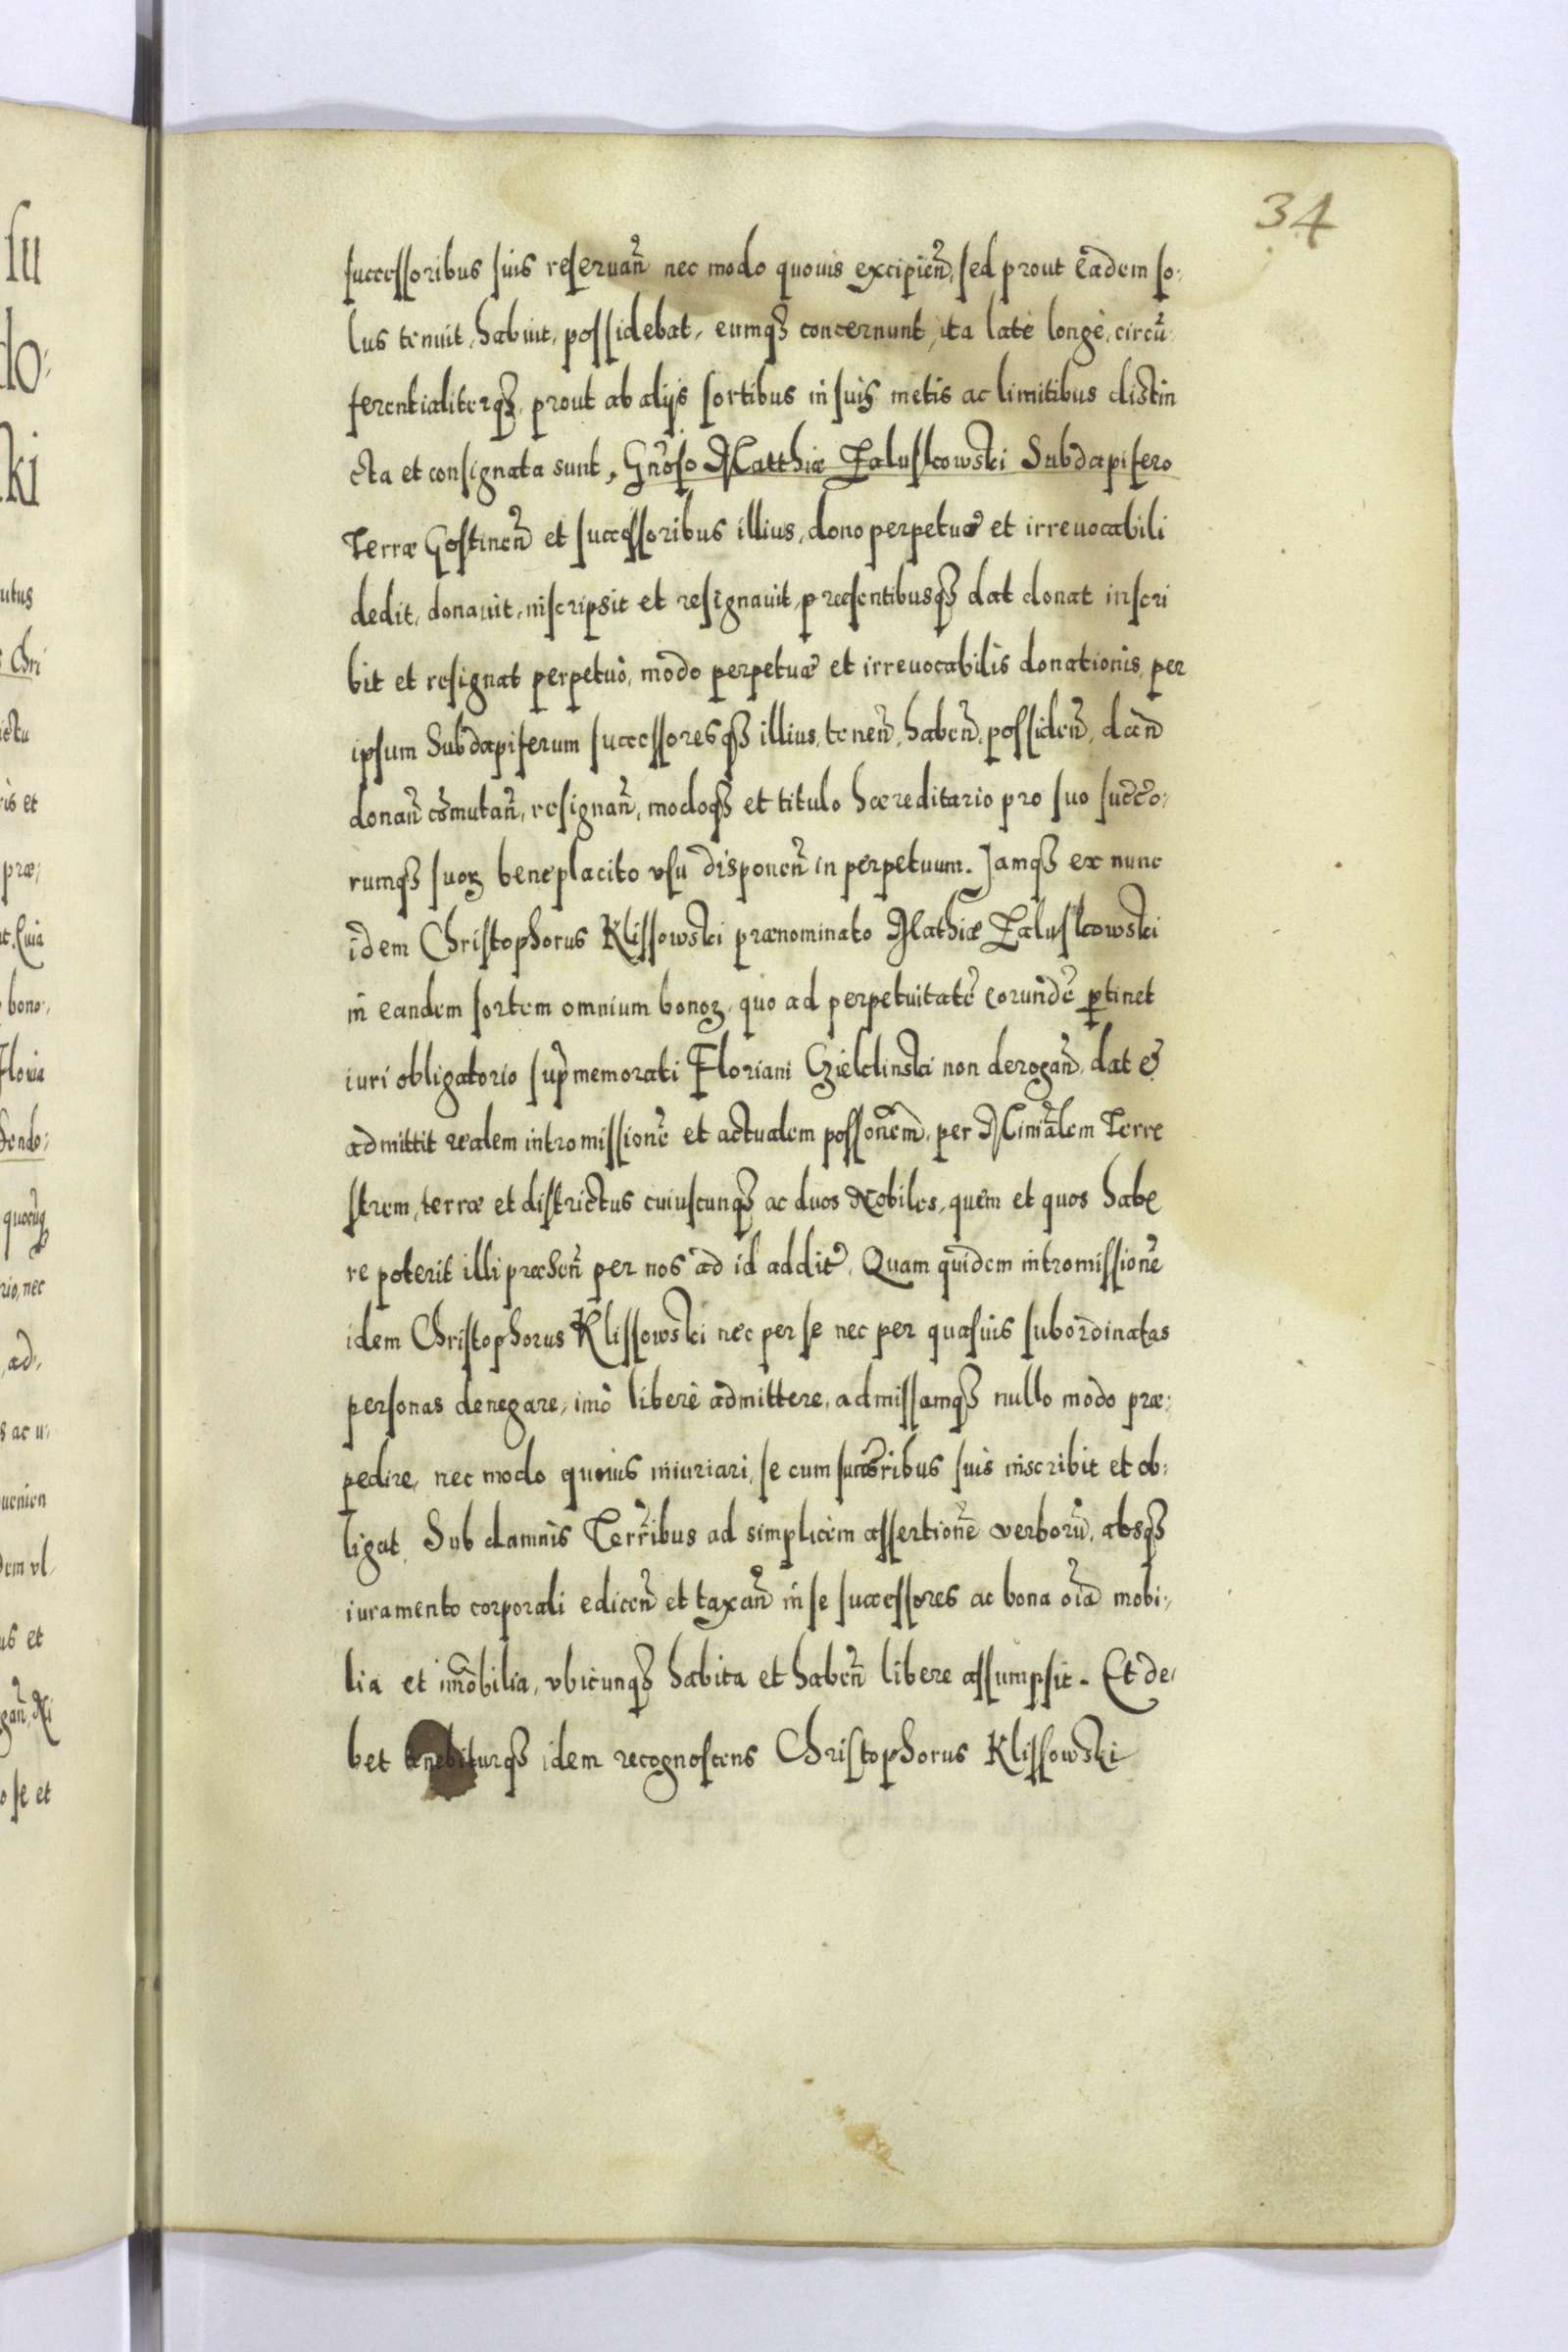 34
successoribus suis reseruan̄ nec modo quouis excipien̄, sed prout eadem so:
lus tenuit, habuit, possidebat, eumq3 concernunt, ita latè longè, circū
ferentialiterq3, prout ab alijs sortibus in suis metis ac limitibus distin
cta et consignata sunt, Gn̄oso Matthiæ Zaluskowski Subdapifero
Terræ Gostinen̄ et successoribus illius, dono perpetuo et irreuocabili
dedit, donauit, inscripsit et resignauit, præsentibusq3 dat donat inscri
bit et resignat perpetuò, modo perpetuæ et irreuocabilis donationis, per
ipsum Subdapiferum successoresq3 illius, tenen̄, haben̄, possiden̄, dan̄d
donan̄ cōmutan̄, resignan̄, modoq3 et titulo hæreditario pro suo succō:
rumq3 suoꝝ beneplacito vsu disponen̄ in perpetuum. Jamq3 ex nunc
idem Christophorus Klissowski prænominato Mathiæ Zaluskowski
in eandem sortem omnium bonoꝝ, quo ad perpetuitatē eorundē ꝑtinet
iuri obligatorio sup̄memorati Floriani Gzieldinski non derogan̄, dat &
admittit realem intromissionē et actualem possōnem, per Minrālem Terre
strem, terræ et districtus cuiuscunq3 ac duos Nobiles, quem et quos habe
re poterit illi præhen̄ per nos ad id addit̄. Quam quidem intromissionē
idem Christophorus Klissowski nec per se nec per quasuis subordinatas
personas denegare, imò liberè admittere, admissamq3 nullo modo præ:
pedire, nec modo quouis iniuriari, se cum succōribus suis inscribit et ob:
ligat, Sub damnis Terr̄ibus ad simplicem assertionē verborū, absq3
iuramento corporali edicen̄ et taxan̄ in se successores ac bona oīa mobi:,
lia et im̄obilia, vbicunq3 habita et haben̄ libere assumpsit. Et de,
bet tenebiturq3 idem recognoscens Christophorus Klissowski